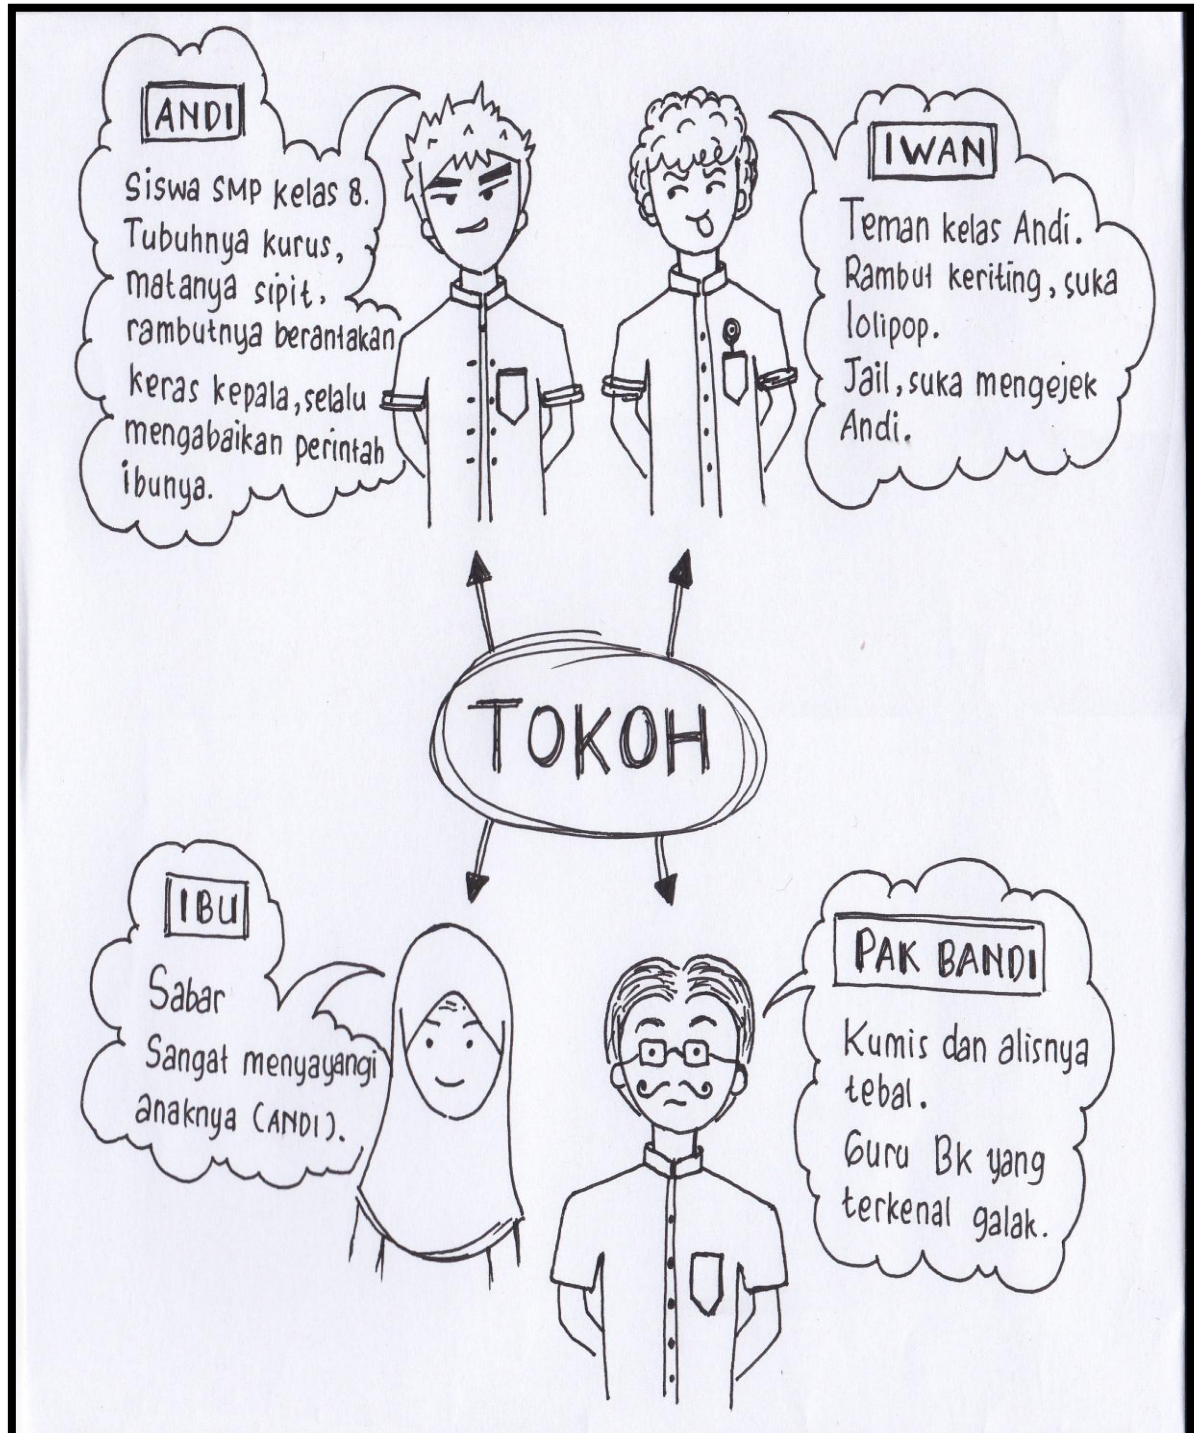 ANDI
Siswa SMP kelas 8.
Tubuhnya kurus,
matanya sipit,
rambutnya berantakan
keras kepala, selalu
mengabaikan perintah
ibunya.
IWAN
Teman kelas Andi.
Rambut keriting, suka
lolipop.
Jail, suka mengejek
Andi.
TOKOH
IBU
Sabar
Sangat menyayangi
anaknya (ANDI).
PAK BANDI
Kumis dan alisnya
tebal.
Guru BK yang
terkenal galak.